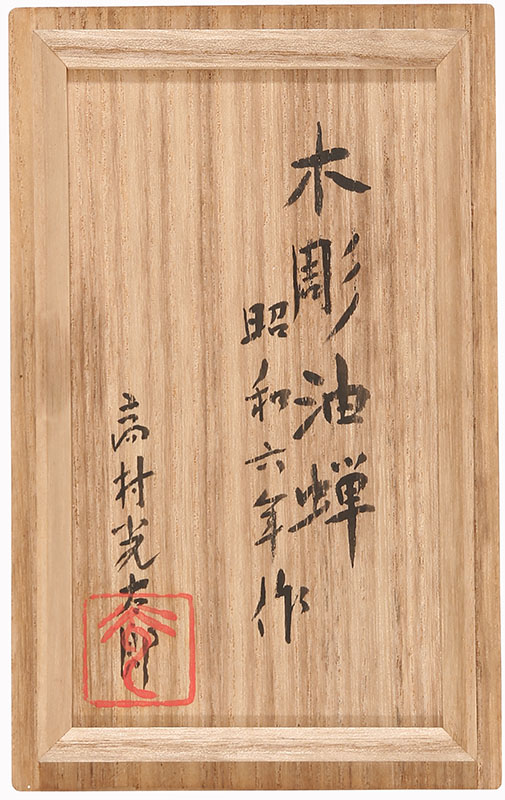 木彫油蝉
昭和六年作
高村光太郎